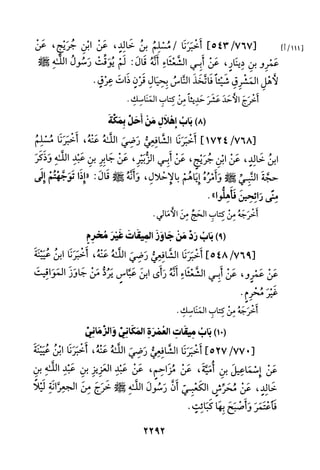 [١١١/أ]
[٥٤٣/٧٦٧] أَخْبَرَنَا / مُسْلِمُ بنُ خَالِدٍ، عَنْ ابْنِ جُرَيْجٍ، عَنْ
عَمْرِو بنِ دِينَارٍ، عَنْ أَبِي الشَّعْثَاءِ أَنَّهُ قَالَ: لَمْ يُوَقِّتْ رَسُولُ اللَّهِ ﷺ
لأَهْلِ المَشْرِقِ شَيْئاً فَاتَّخَذَ النَّاسُ بِحِيَالِ قَرْنٍ ذَاتَ عِرْقٍ.
أَخْرَجَ الأَحَدَ عَشَرَ حَدِيثاً مِنْ كِتَابِ المَنَاسِكِ.
(٨) بَابُ إِهْلَالِ مَنْ أَحَلَّ بِمَكَّةَ
[١٧٢٤/٧٦٨] أَخْبَرَنَا الشَّافِعِيُّ رَضِيَ اللَّهُ عَنْهُ، أَخْبَرَنَا مُسْلِمُ
ابنُ خَالِدٍ، عَنْ ابْنِ جُرَيْجٍ، عَنْ أَبِي الزُّبَيْرِ، عَنْ جَابِرِ بنِ عَبْدِ اللَّهِ وَذَكَرَ
حجَّةَ النَّبِيِّ ﷺ وَأَمْرُهُ إِيَّاهُمْ بِالإِحْلَالِ، وَأَنَّهُ ﷺ قَالَ: «إِذَا تَوَجَّهْتُمْ إِلَى
مِنًى رَائِحِينَ فَأَهِلُّوا».
أَخْرَجَهُ مِنْ كِتابِ الحَجِّ مِنَ الأَمَالي.
(٩) بَابُ رَدِّ مَنْ جَاوَزَ المِيقَاتَ غَيْرَ مُحْرِمٍ
[٥٤٨/٧٦٩] أَخْبَرَنَا الشَّافِعِيُّ رَضِيَ اللَّهُ عَنْهُ، أَخْبَرَنَا ابنُ عُيَيْنَةَ
عَنْ عَمْرٍو، عَنْ أَبِي الشَّعْثَاءِ أَنَّهُ رَأَى ابنَ عَبَّاسٍ يَرُدُّ مَنْ جَاوَزَ المَوَاقِيتَ
غَيْرَ مُحْرِمٍ.
أَخْرَجَهُ مِنْ كِتابِ المَنَاسِكِ.
(١٠) بَابُ مِيقَاتِ العُمْرَةِ المَكَانِيِّ وَالزَّمَانِيِّ
[٥٢٧/٧٧٠] أَخْبَرَنَا الشَّافِعِيُّ رَضِيَ اللَّهُ عَنْهُ، أَخْبَرَنَا ابْنُ عُيَيْنَةَ
عَنْ إِسْمَاعِيلَ بنِ أُمَيَّةَ، عَنْ مُزَاحِمٍ، عَنْ عَبْدِ العَزِيزِ بنِ عَبْدِ اللَّهِ بنِ
خَالِدٍ، عَنْ مُحَرِّشٍ الكَعْبِيِّ أَنَّ رَسُولَ اللَّهِ ﷺ خَرَجَ مِنَ الجعرَّانَةِ لَيْلًا
فَاعْتَمَرَ وَأَصْبَحَ بِهَا كَبَائِتٍ.
٢٢٩٢